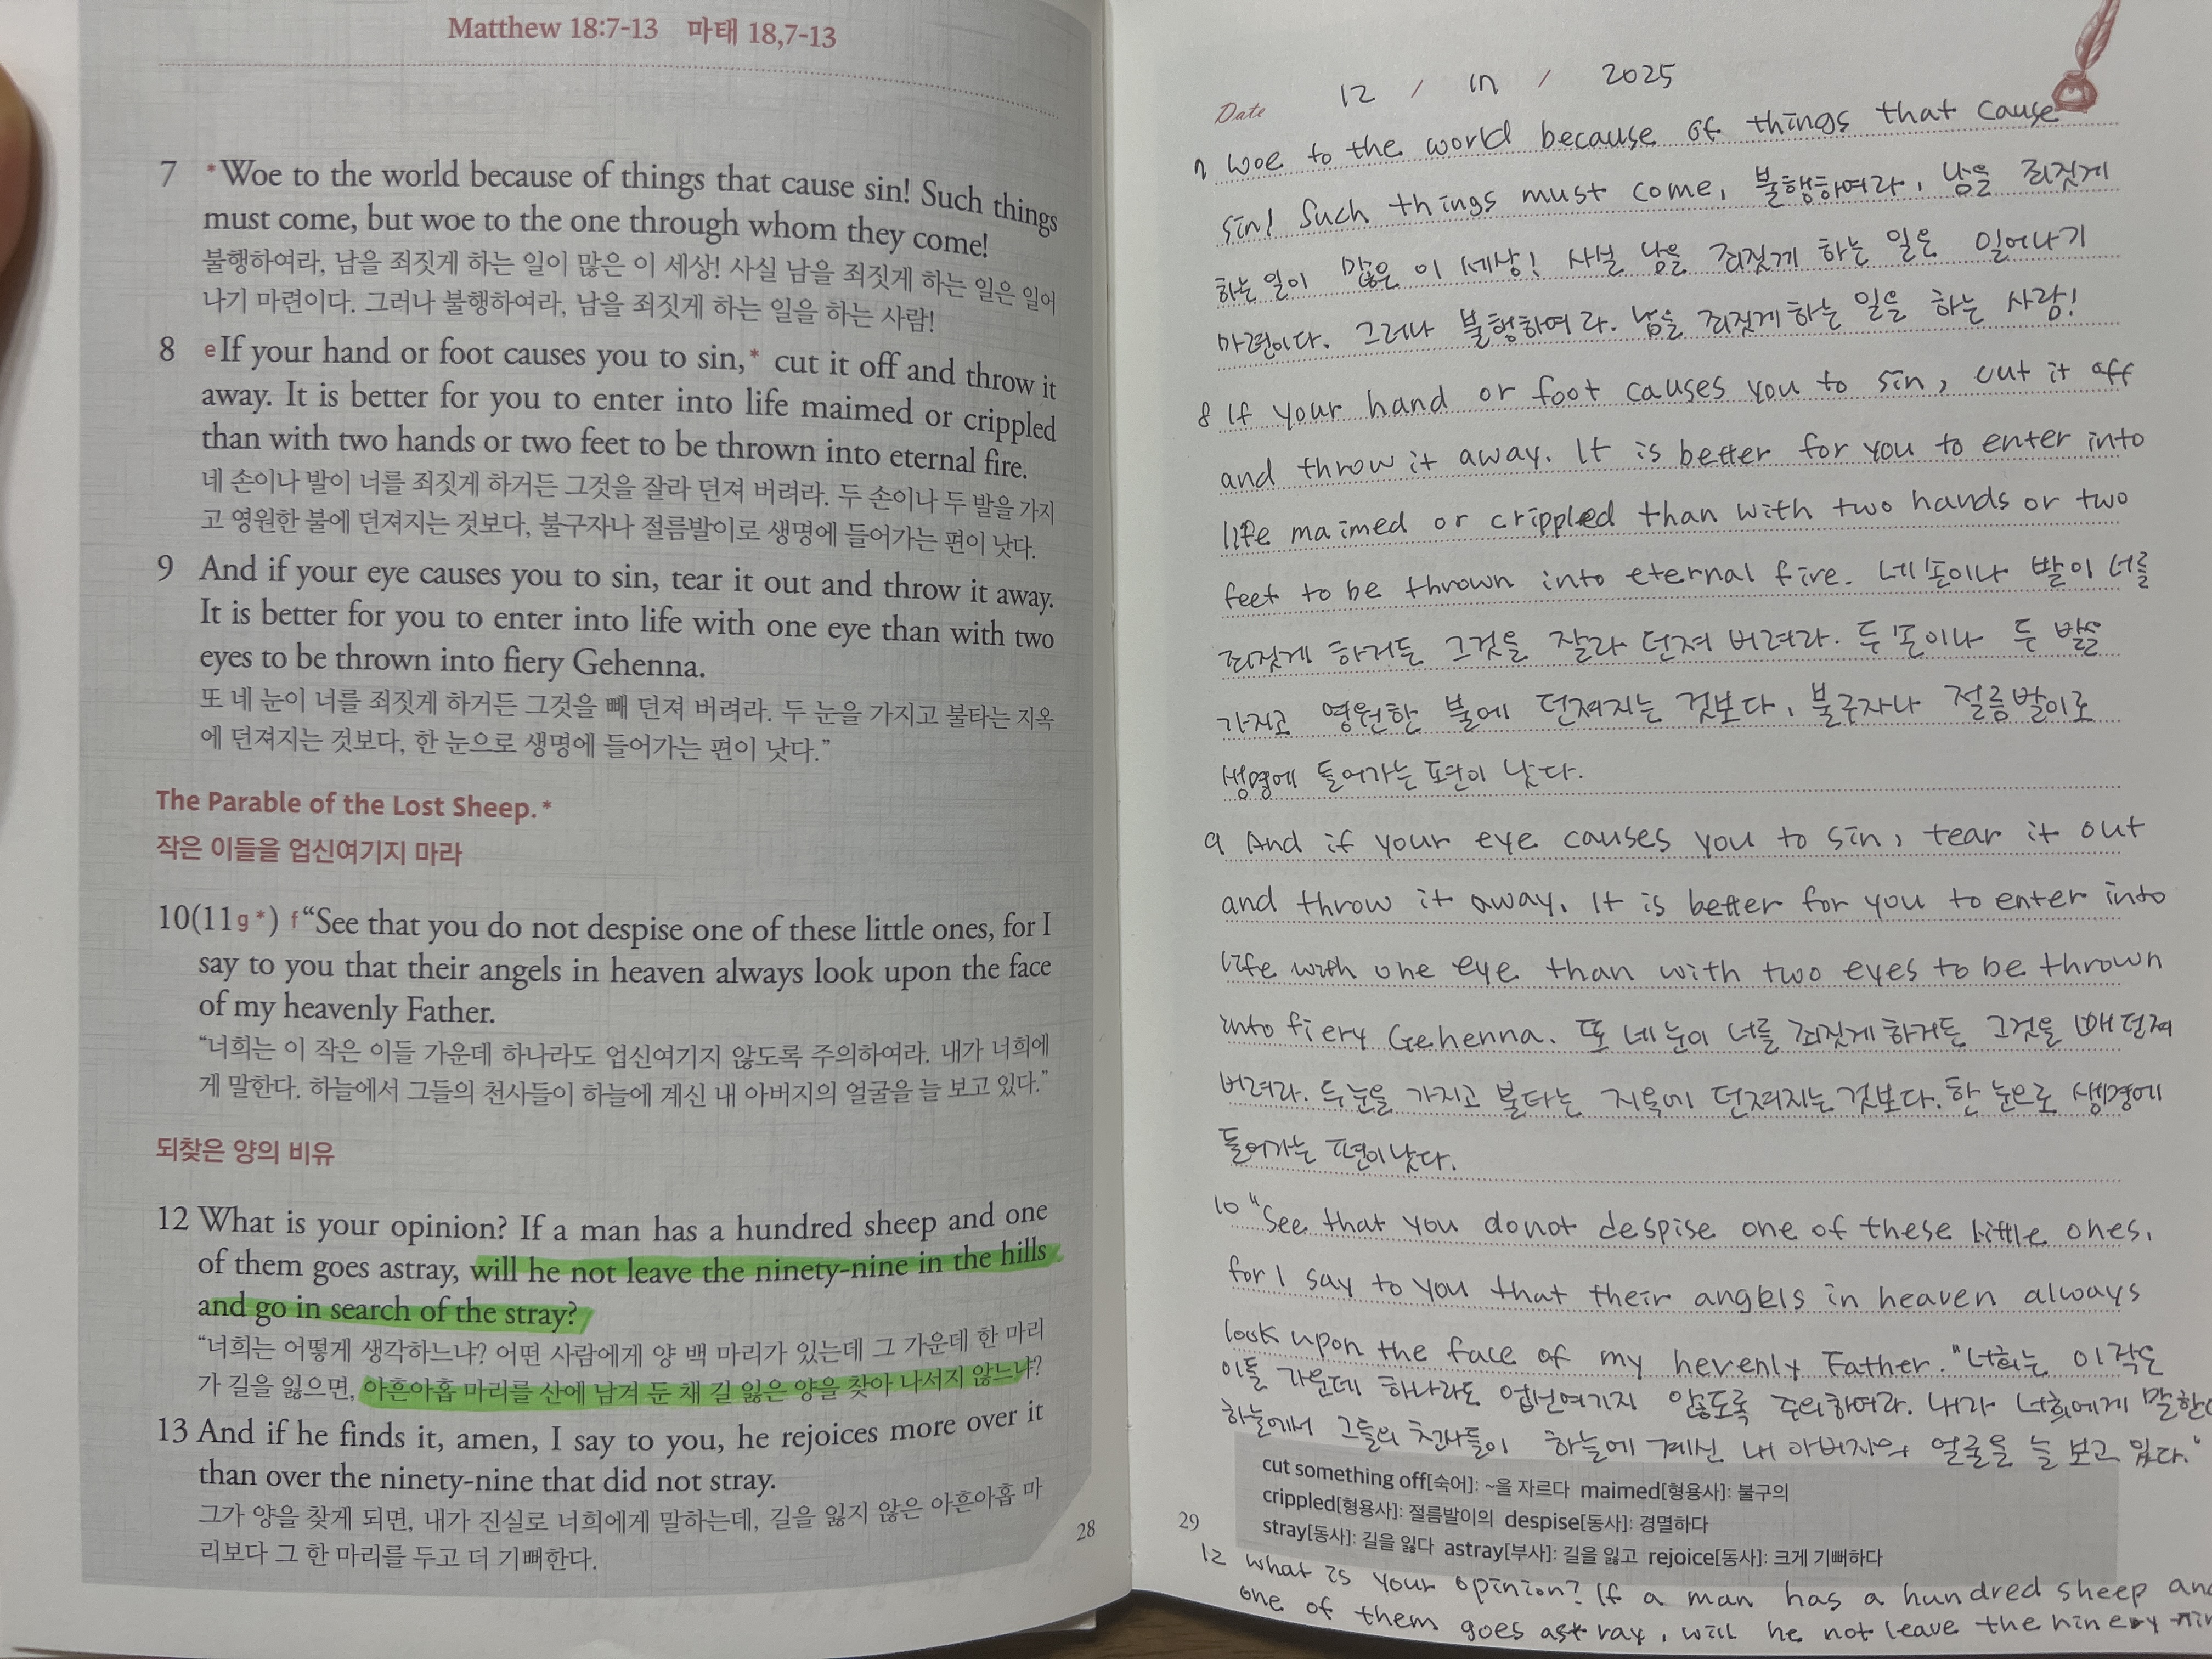 Matthew 18:7-13 마태 18,7-13
7 *Woe to the world because of things that cause sin! Such things
must come, but woe to the one through whom they come!
불행하여라, 남을 죄짓게 하는 일이 많은 이 세상! 사실 남을 죄짓게 하는 일은 일어
나기 마련이다. 그러나 불행하여라, 남을 죄짓게 하는 일을 하는 사람!
8 eIf your hand or foot causes you to sin,* cut it off and throw it
away. It is better for you to enter into life maimed or crippled
than with two hands or two feet to be thrown into eternal fire.
네 손이나 발이 너를 죄짓게 하거든 그것을 잘라 던져 버려라. 두 손이나 두 발을 가지
고 영원한 불에 던져지는 것보다, 불구자나 절름발이로 생명에 들어가는 편이 낫다.
9 And if your eye causes you to sin, tear it out and throw it away.
It is better for you to enter into life with one eye than with two
eyes to be thrown into fiery Gehenna.
또 네 눈이 너를 죄짓게 하거든 그것을 빼 던져 버려라. 두 눈을 가지고 불타는 지옥
에 던져지는 것보다, 한 눈으로 생명에 들어가는 편이 낫다.”
The Parable of the Lost Sheep.*
작은 이들을 업신여기지 마라
10(11g*) f“See that you do not despise one of these little ones, for I
say to you that their angels in heaven always look upon the face
of my heavenly Father.
“너희는 이 작은 이들 가운데 하나라도 업신여기지 않도록 주의하여라. 내가 너희에
게 말한다. 하늘에서 그들의 천사들이 하늘에 계신 내 아버지의 얼굴을 늘 보고 있다.”
되찾은 양의 비유
12 What is your opinion? If a man has a hundred sheep and one
of them goes astray, will he not leave the ninety-nine in the hills
and go in search of the stray?
“너희는 어떻게 생각하느냐? 어떤 사람에게 양 백 마리가 있는데 그 가운데 한 마리
가 길을 잃으면, 아흔아홉 마리를 산에 남겨 둔 채 길 잃은 양을 찾아 나서지 않느냐?
13 And if he finds it, amen, I say to you, he rejoices more over it
than over the ninety-nine that did not stray.
그가 양을 찾게 되면, 내가 진실로 너희에게 말하는데, 길을 잃지 않은 아흔아홉 마
리보다 그 한 마리를 두고 더 기뻐한다.
28
Date 12 / 17 / 2025
7 Woe to the world because of things that cause
sin! Such things must come, 불행하여라, 남을 죄짓게
하는 일이 많은 이 세상! 사실 남을 죄짓게 하는 일은 일어나기
마련이다. 그러나 불행하여라. 남을 죄짓게 하는 일을 하는 사람!
8 If your hand or foot causes you to sin, cut it off
and throw it away. It is better for you to enter into
life maimed or crippled than with two hands or two
feet to be thrown into eternal fire. 네 손이나 발이 너를
죄짓게 하거든 그것을 잘라 던져 버려라. 두 손이나 두 발을
가지고 영원한 불에 던져지는 것보다, 불구자나 절름발이로
생명에 들어가는 편이 낫다.
9 And if your eye causes you to sin, tear it out
and throw it away. It is better for you to enter into
life with one eye than with two eyes to be thrown
into fiery Gehenna. 또 네 눈이 너를 죄짓게 하거든 그것을 빼 던져
버려라. 두 눈을 가지고 불타는 지옥에 던져지는 것보다. 한 눈으로 생명에
들어가는 편이 낫다.
10 "See that you do not despise one of these little ones,
for I say to you that their angels in heaven always
look upon the face of my hevenly Father. "너희는 이 작은
이들 가운데 하나라도 업신여기지 않도록 주의하여라. 내가 너희에게 말한다
하늘에서 그들의 천사들이 하늘에 계신 내 아버지의 얼굴을 늘 보고 있다."
cut something off[숙어]: ~을 자르다 maimed[형용사]: 불구의
crippled[형용사]: 절름발이의 despise[동사]: 경멸하다
stray[동사]: 길을 잃다 astray[부사]: 길을 잃고 rejoice[동사]: 크게 기뻐하다
29
12 What is your opinion? If a man has a hundred sheep and
one of them goes astray, will he not leave the